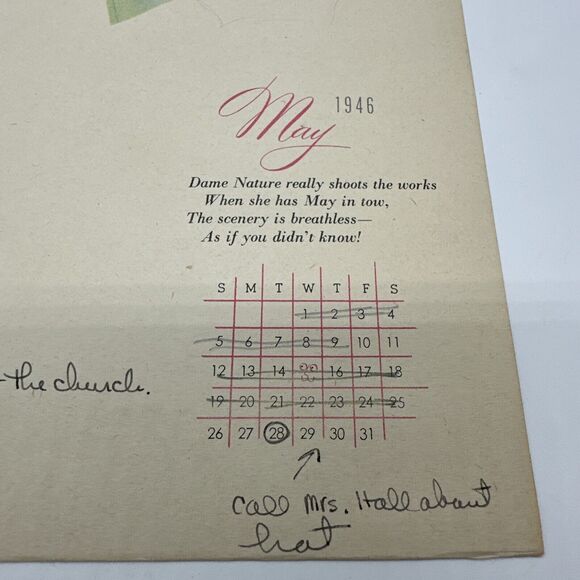 May 1946
Dame Nature really shoots the works
When she has May in tow,
The scenery is breathless—
As if you didn't know!
S M T W T F S
1 2 3 4
5 6 7 8 9 10 11
12 13 14 16 17 18
19 20 21 22 23 24 25
26 27 28 29 30 31
the church.
Call Mrs. Hall about
hat